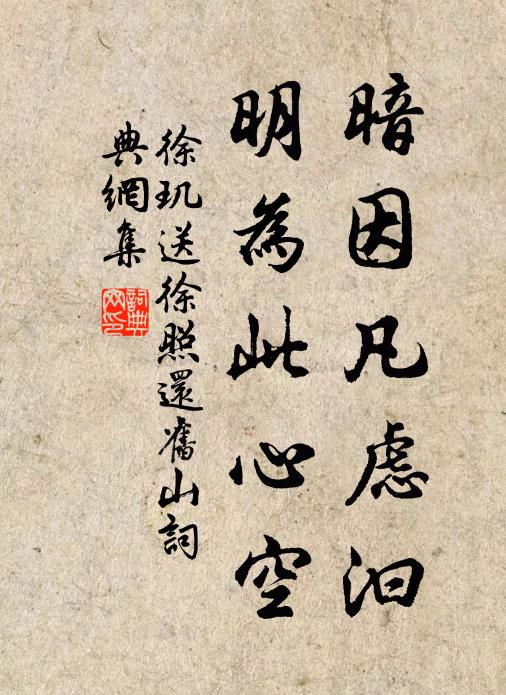 暗因凡慮汩
明為此心空
徐玑送徐照還舊山詞
典網集
詞典
网印